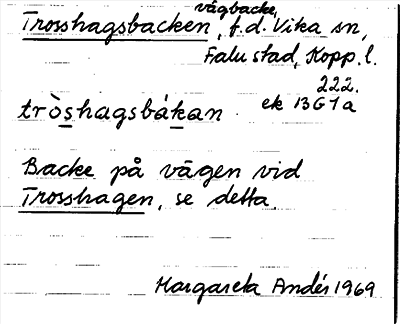 vägbacke,
Trosshagsbacken, f.d. Vika sn,
Falu stad, Kopp. l.
222.
ek 13G1a
tròshagsbákan
Backe på vägen vid
Trosshagen, se detta.
Margareta Andér 1969